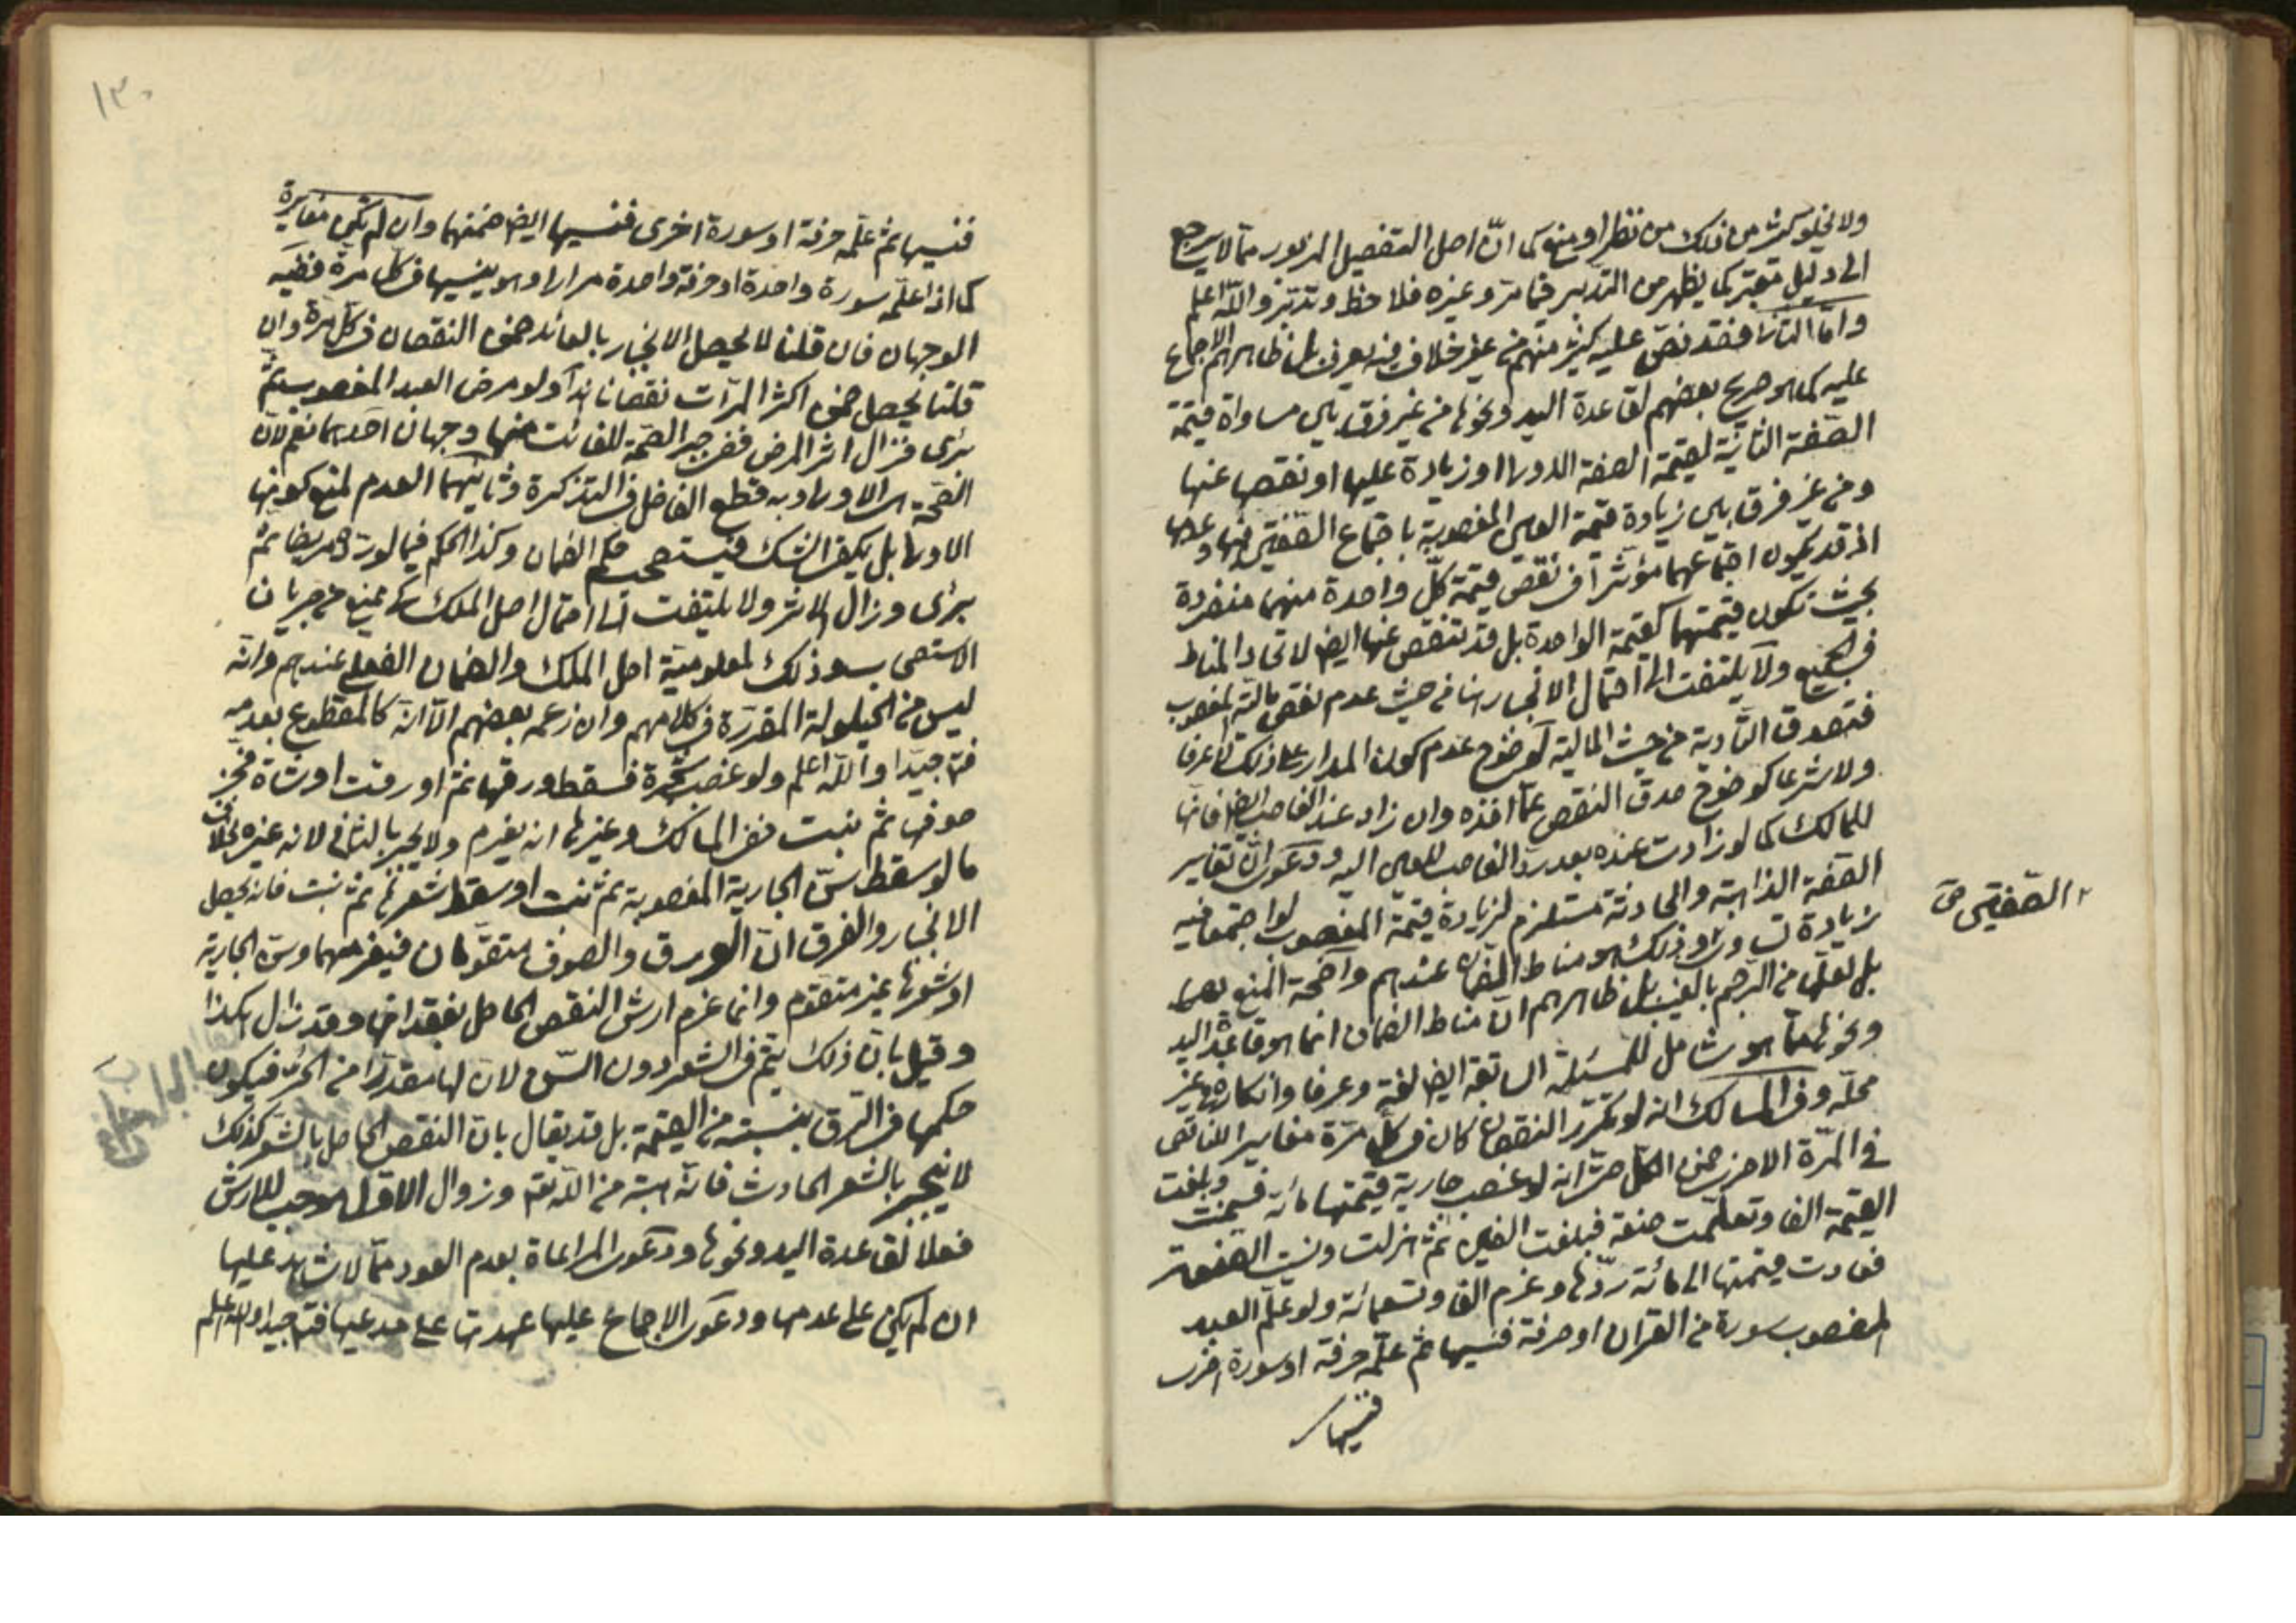 ولا يخلو كثير من ذلك من نظر او منع كما انّ اصل التفصيل المزبور ممّا لا يرجع
الى دليل معتبر كما يظهر من التدبر فيما مرّ وغيره فلاحظ وتدبّر واللّه اعلم
وامّا الثانى فقد نصّ عليه كثير منهم من غير خلاف فيه يعرف بل ظاهرهم الاجماع
عليه كما هو صريح بعضهم لقاعدة اليد ونحوها من غير فرق بين مساواة قيمة
الصّفة الثانية لقيمة الصفة الاولى او زيادة عليها او نقصها عنها
ومن غير فرق بين زيادة قيمة العين المغصوبة باجتماع الصّفتين فيها وعدمها
اذ قد يكون اجتماعهما مؤثّرا فى نقص قيمة كلّ واحدة منهما منفردة
بحيث تكون قيمتهما كقيمة الواحدة بل قد تنقص عنها ايض لاتحاد المناط
فى الجميع ولا يلتفت الى احتمال الانجبار هنا من حيث عدم نقص مالية المغصوب
فتصدق التأدية من حيث المالية لوضوح عدم كون المدار على ذلك لا عرفا
ولا شرعا كوضوح صدق النقص عمّا اخذه وان زاد عند الغاصب ايض فانها
للمالك كما لو زادت عنده بعد ردّ الغاصب للعين اليه ودعوى انّ تغاير
الصّفة الذاهبة والحادثة مستلزم لزيادة قيمة المغصوب لو اجتمعا فيه
٢ الصّفتين ص
زيادة وذلك هو مناط الضمان عندهم واضحة المنع
بل لعلّها من الرجم بالغيب بل ظاهرهم انّ مناط الضمان انما هو قاعدة اليد
ونحوها ممّا هو شامل للمسئلة السابقة ايض لغة وعرفا وانكاره فى غير
محلّه وفى المسالك انه لو تكرّر النقصان كان فى كلّ مرّة مغايرا للناقص
فى المرّة الاخرى ضمن الكلّ حتّى انه لو غصب جارية قيمتها مائة فسمنت وبلغت
القيمة الفا وتعلّمت صنعة فبلغت الفين ثم هزلت ونسيت الصنعة
فعادت قيمتها الى مائة ردّها وغرم الفا وتسعمائة ولو علّم العبد
المغصوب سورة من القران او حرفة فنسيها ثم علّمه حرفة او سورة اخرى
فنسيها
١٣٠
فنسيها ثم علّمه حرفة او سورة اخرى فنسيها ايض ضمنهما وان لم تكن مغايرة
كما اذا علّمه سورة واحدة او حرفة واحدة مرارا وهو ينسيها فى كلّ مرّة ففيه
الوجهان فان قلنا لا يحصل الانجبار بالعائد ضمن النقصان فى كلّ مرّة وان
قلنا يحصل ضمن اكثر المرّات نقصانا ولو مرض العبد المغصوب ثمّ
برئ فزال اثر المرض ففى جبر الصّحة للفائت منها وجهان احدهما نعم لانّ
الصّحة هى الاولى وبه قطع الفاضل فى التذكرة وثانيهما العدم لمنع كونها
الاولى بل يكفى الشك فيستصحب حكم الضمان وكذا الحكم فيما لو ردّه مريضا ثم
برئ وزال الاثر ولا يلتفت الى احتمال اصل الملك كى يمنع من جريان
الاستصحاب وذلك لمعلومية اصل الملك والضمان الفعلى عندهم وانّه
ليس من الحيلولة المقرّرة فى كلامهم وان زعمه بعضهم الّا انّه كالمقطوع بعدمه
فتـ جيّدا واللّه اعلم ولو غصب شجرة فسقط ورقها ثم اورقت او شاة فجز
صوفها ثم نبت ففى المسالك وغيرها انه يغرم ولا يجبر بالثانى لانه غيره بخلاف
ما لو سقط سنّ الجارية المغصوبة ثم نبت او سقط شعرها ثم نبت فانه يحصل
الانجبار والفرق انّ الورق والصوف متقوّمان فيغرمهما وسنّ الجارية
او شعرها غير متقوم وانما غرم ارش النقص الحاصل بفقدانها وقد زال هكذا
وقيل بانّ ذلك يتمّ فى الشعر دون السّن لانّ لها مقدرا من الحرّ فيكون
حكمها فى الرّق بنسبته من القيمة بل قد يقال بان النقص الحاصل بالشعر كذلك
لا ينجبر بالشعر الحادث فانّه هبة من اللّه تعـ وزوال الاوّل موجب للارش
فعلا لقاعدة اليد ونحوها ودعوى المراعاة بعدم العود ممّا لا شاهد عليها
ان لم يكن على عدمها ودعوى الاجماع عليها عهدتها على مدعيها فتـ جيدا واللّه اعلم